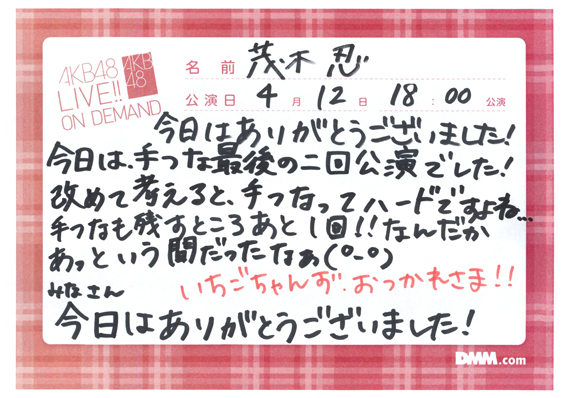 AKB48
LIVE!!
ON DEMAND
AKB
48
名前 茂木 忍
公演日 4月 12日 18:00 公演
今日はありがとうございました!
今日は、手つな最後の二回公演でした!
改めて考えると、手つなってハードですよね...
手つなも残すところあと1回!!なんだか
あっという間だったなぁ(°-°)
いちごちゃんず、おつかれさま!!
みなさん
今日はありがとうございました!
DMM.com